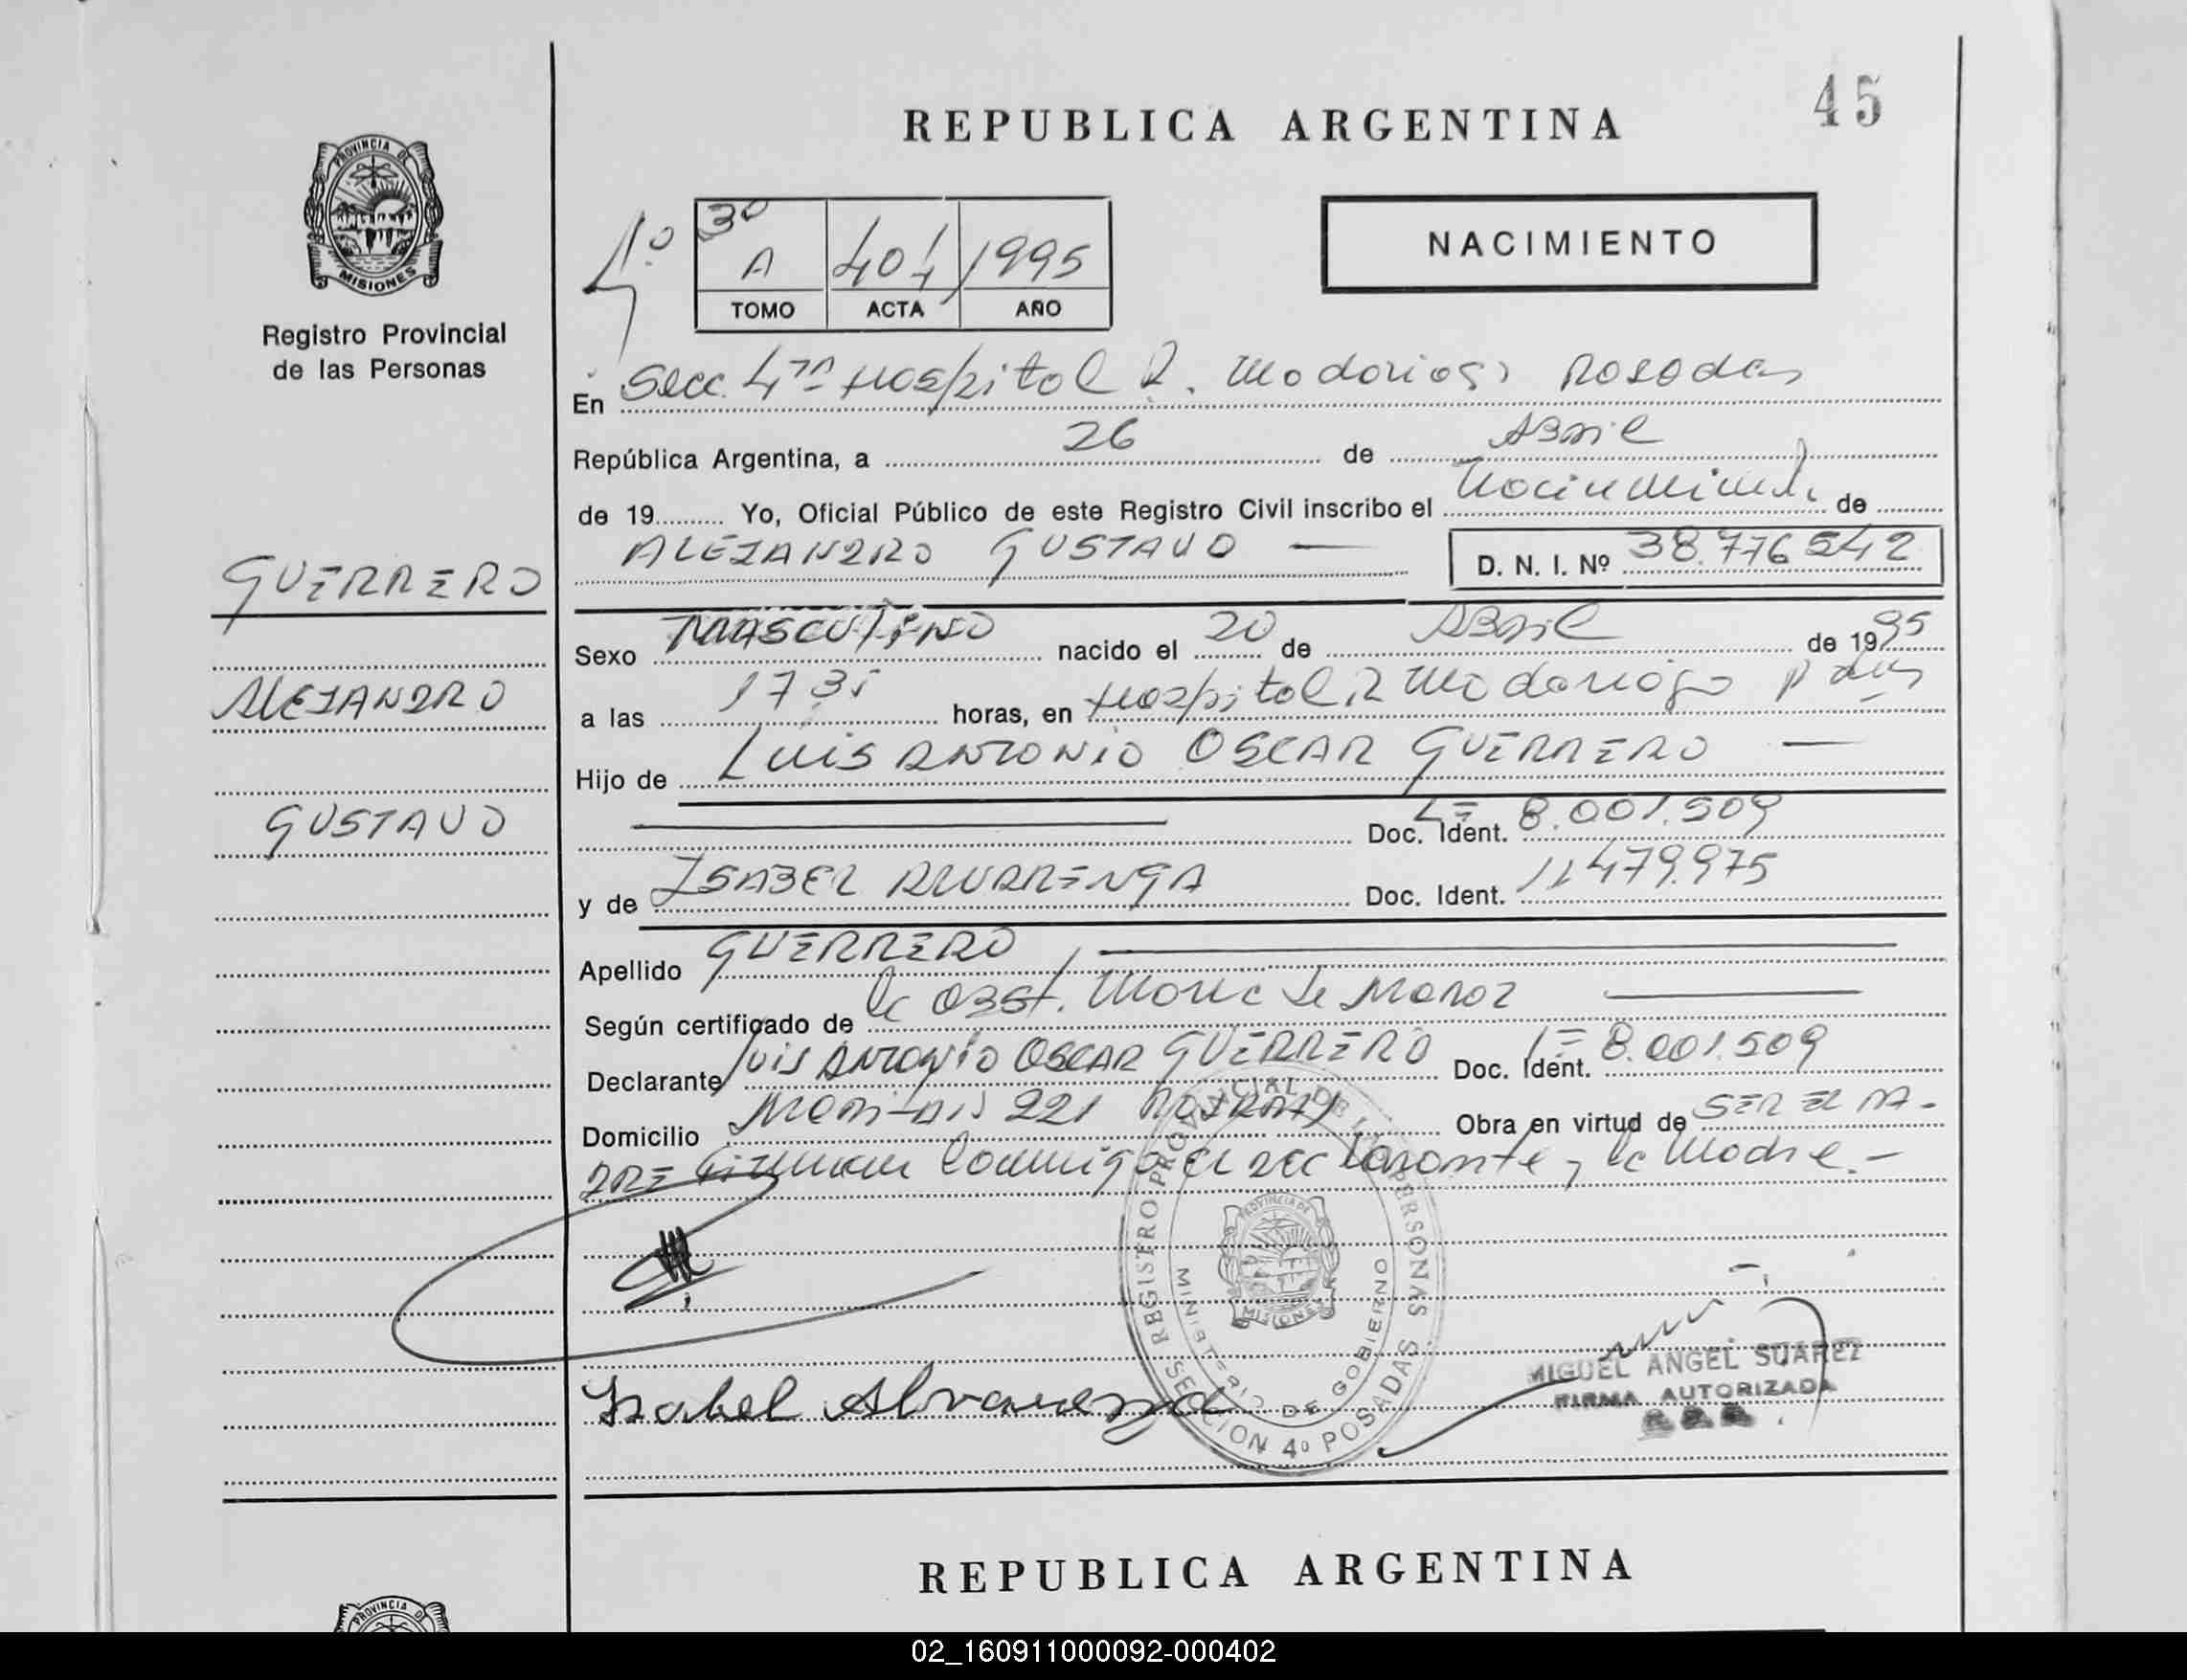 45
REPUBLICA ARGENTINA
PROVINCIA DE
MISIONES
Registro Provincial
de las Personas
4º
3º
A 404 1995
TOMO ACTA AÑO
NACIMIENTO
En Secc. 4ta Hospital R. Madariaga Posadas
República Argentina, a 26 de Abril
de 19 Yo, Oficial Público de este Registro Civil inscribo el Nacimiento de
ALEJANDRO GUSTAVO — D. N. I. Nº 38.776542
GUERRERO
ALEJANDRO
GUSTAVO
Sexo MASCULINO nacido el 20 de Abril de 1995
a las 17 35 horas, en Hospital R Madariaga Pdas
Hijo de LUIS ANTONIO OSCAR GUERRERO —
Doc. Ident. LE 8.001.509
y de ISABEL ALVARENGA Doc. Ident. 11479.975
Apellido GUERRERO
Según certificado de la Obst. de
Declarante LUIS ANTONIO OSCAR GUERRERO Doc. Ident. LE 8.001.509
Domicilio 221 Obra en virtud de SER EL PA-
DRE Firman conmigo el declarante y la Madre.-
REGISTRO PROVINCIAL DE LAS PERSONAS
MINISTERIO DE GOBIERNO
SECCION 4º POSADAS
PROVINCIA DE
MISIONES
Isabel Alvarenga
MIGUEL ANGEL SUAREZ
FIRMA AUTORIZADA
REPUBLICA ARGENTINA
PROVINCIA DE
02_160911000092-000402